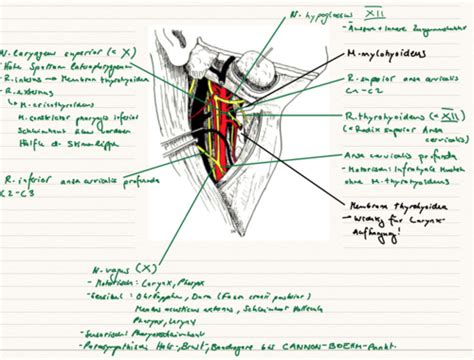 N. hypoglossus XII
- Äussere + innere Zungenmuskulatur
N. laryngeus superior (< X)
- Höhe Spatium lateropharyngeum
- R. internus → Membrana thyrohyoidea
- R. externus
↳ M. cricothyroideus
M. constrictor pharyngis inferior
Schleimhaut
Hälfte d. Stimmlippe
R. inferior ansa cervicalis profunda
C2-C3
M. mylohyoideus
R. superior ansa cervicalis
C1-C2
R. thyrohyoideus (< XII)
(< Radix superior Ansa cervicalis)
Ansa cervicalis profunda
- Motorisch: Infrahyale Muskeln
ohne M. thyrohyoideus
Membrana thyrohyoidea
- Wichtig für Larynx-
Aufhängung!
N. vagus (X)
- Motorisch: Larynx, Pharynx
- Sensibel: Dura (Fossa cranii posterior)
Meatus acusticus externus, Schleimhaut Vallecula
Pharynx, Larynx
- Sensorisch: Pharynxschleimhaut
- Parasympathisch Hals-, Brust-, Bauchorgane bis CANNON-BOEHM-Punkt.